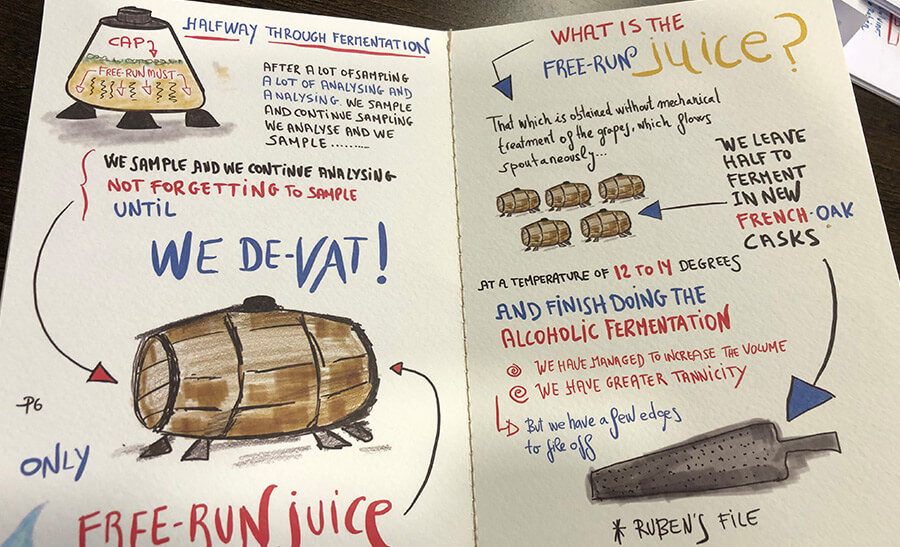 HALFWAY THROUGH FERMENTATION
CAP
FREE-RUN MUST
AFTER A LOT OF SAMPLING
A LOT OF ANALYSING AND
ANALYSING. WE SAMPLE
AND CONTINUE SAMPLING
WE ANALYSE AND WE
SAMPLE ..........
WE SAMPLE AND WE CONTINUE ANALYSING
NOT FORGETTING TO SAMPLE
UNTIL
WE DE-VAT!
-P6
ONLY
FREE-RUN JUICE
WHAT IS THE
FREE-RUN juice?
That which is obtained without mechanical
treatment of the grapes, which flows
spoutaneously...
WE LEAVE
HALF TO
FERMENT
IN NEW
FRENCH-OAK
CASKS
AT A TEMPERATURE OF 12 TO 14 DEGREES
AND FINISH DOING THE
ALCOHOLIC FERMENTATION
WE HAVE MANAGED TO INCREASE THE VOLUME
WE HAVE GREATER TANNICITY
But we have a few edges
to file off
* RUBEN'S FILE